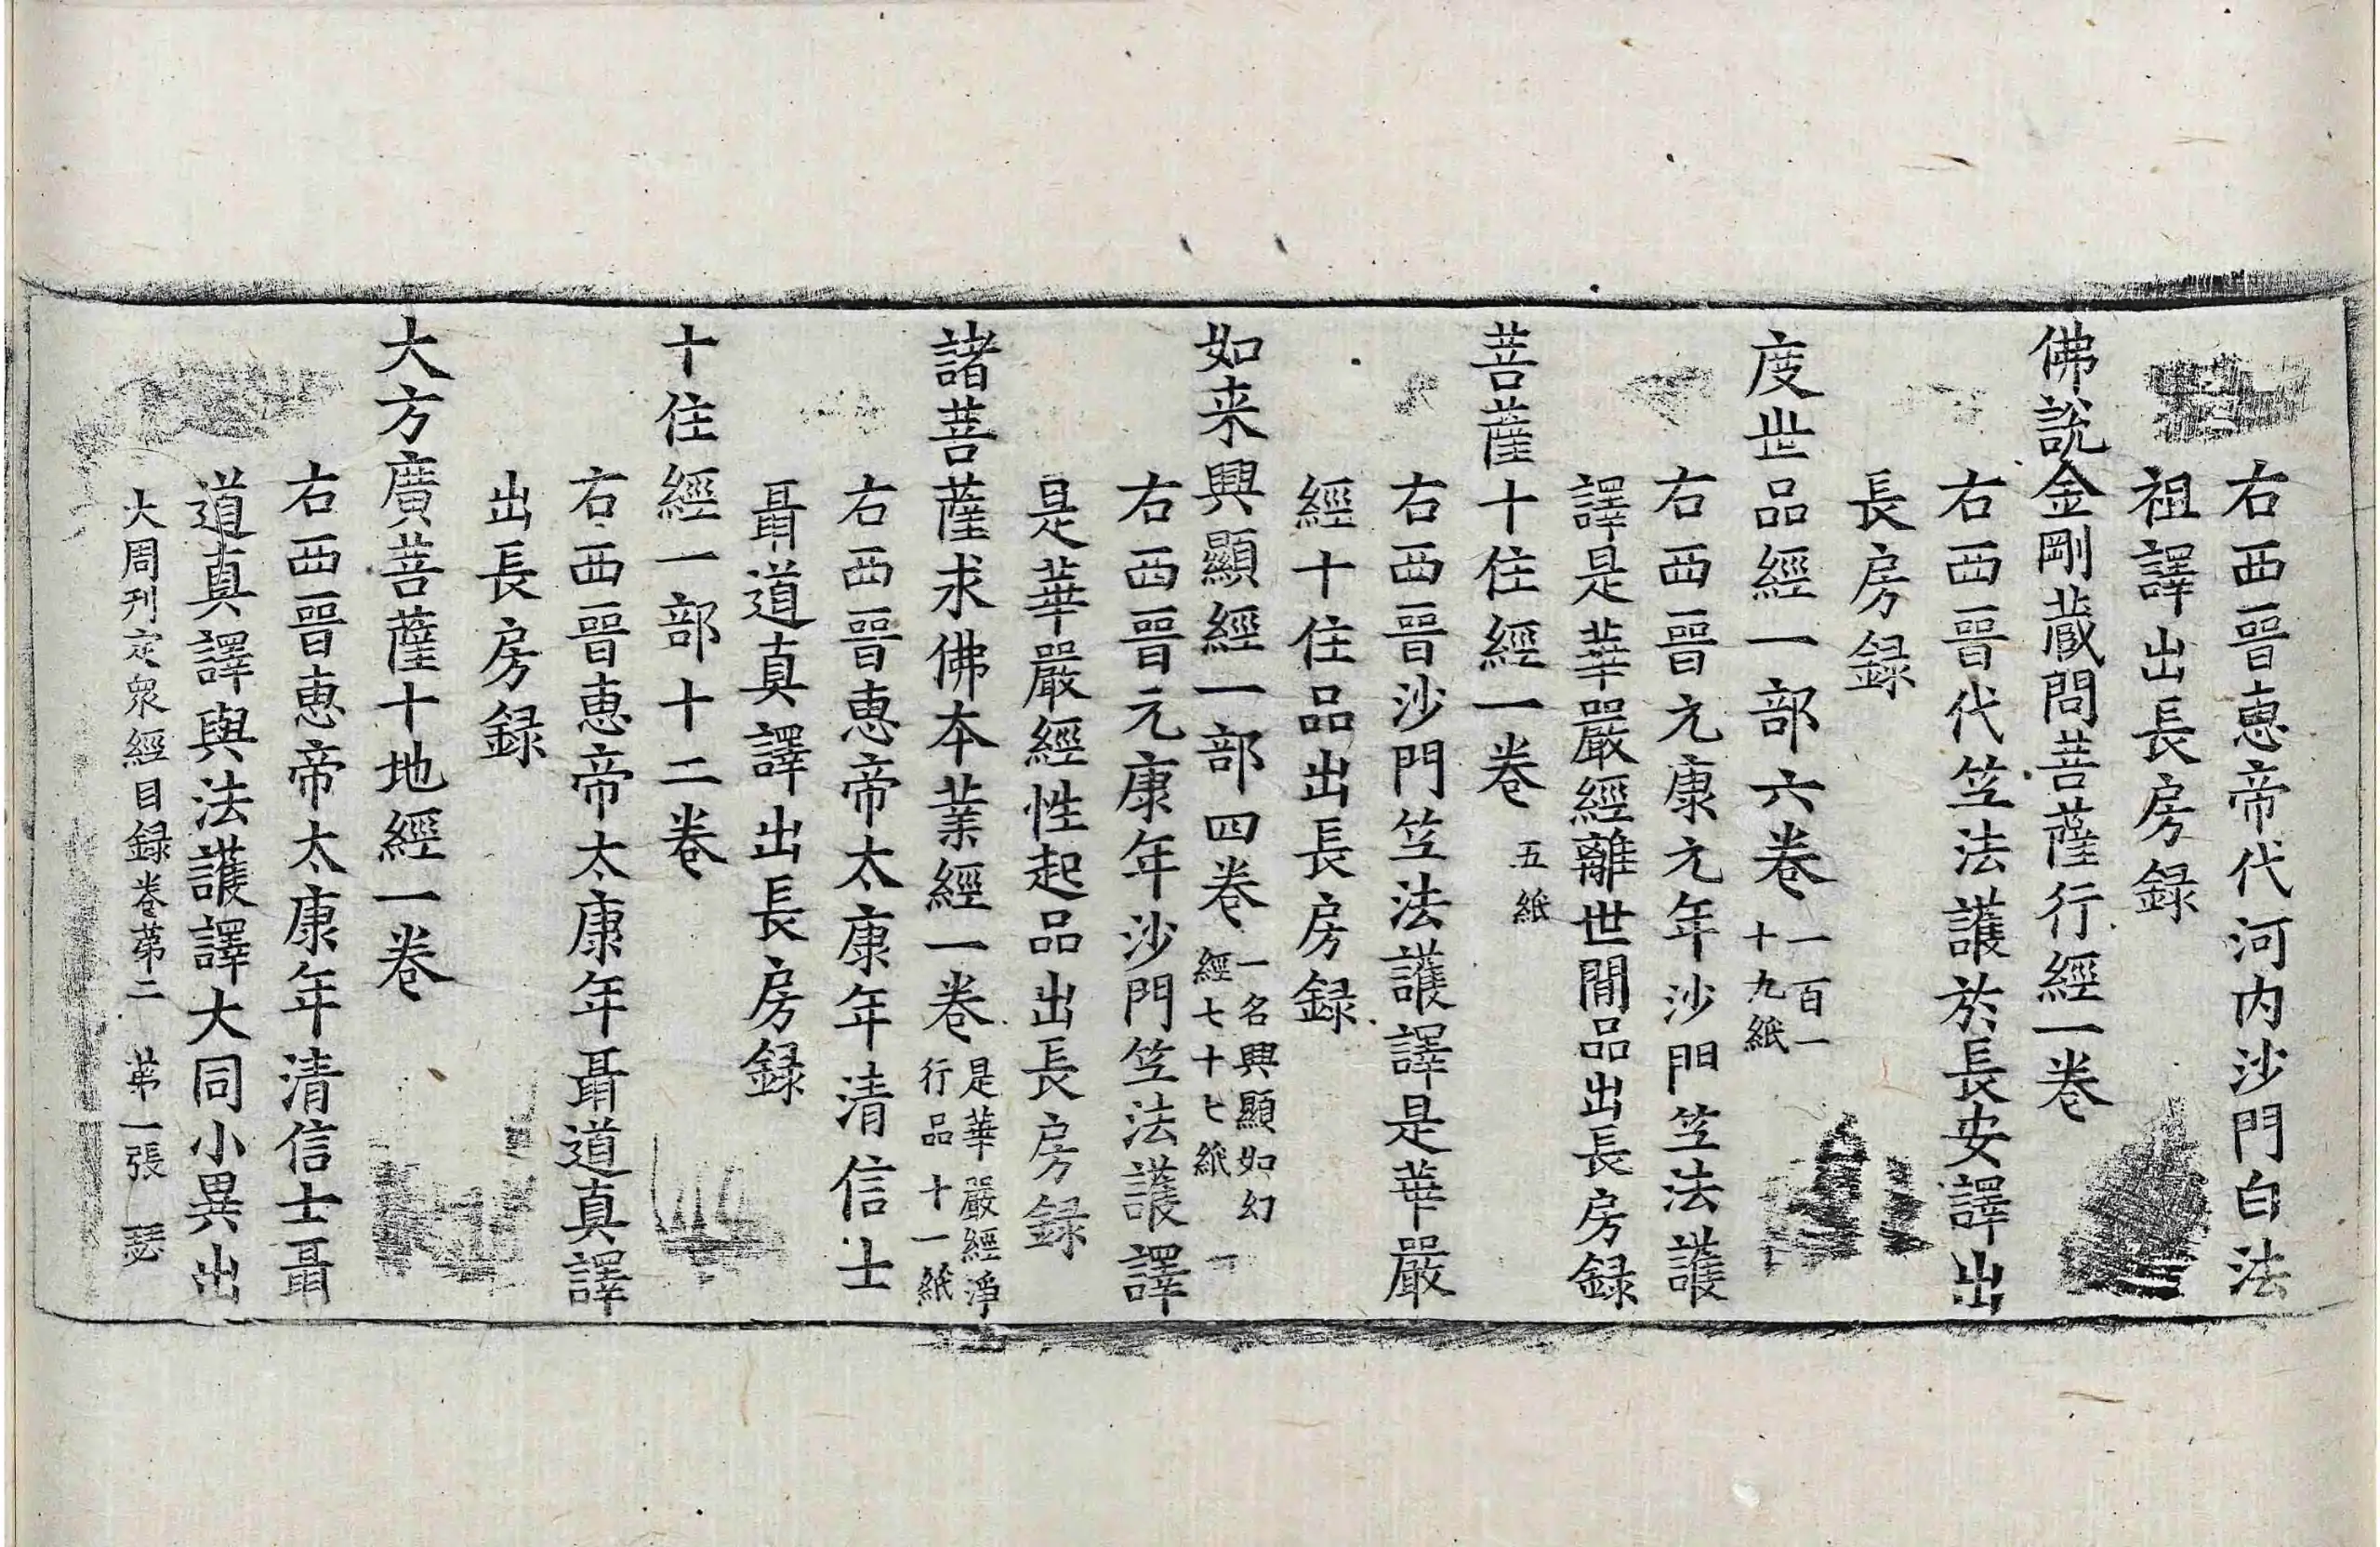 右西晉惠帝代河内沙門白法
祖譯出長房録
佛說金剛蔵問菩薩行經一卷
右西晉代笁法護於長安譯出
長房録
度世品經一部六卷 一百一
十九紙
右西晉元康元年沙門笁法護
譯是華嚴經離世間品出長房録
菩薩十住經一卷 五紙
右西晉沙門笁法護譯是華嚴
經十住品出長房録
如来興顯經一部四卷 一名興顯如幻
經七十七紙
右西晉元康年沙門笁法護譯
是華嚴經性起品出長房録
諸菩薩求佛本業經一卷 是華嚴經淨
行品十一紙
右西晉惠帝太康年清信士
聶道真譯出長房録
十住經一部十二卷
右西晉惠帝太康年聶道真譯
出長房録
大方廣菩薩十地經一卷
右西晉惠帝太康年清信士聶
道真譯與法護譯大同小異出
大周刊定衆經目録卷第二 第一張 瑟